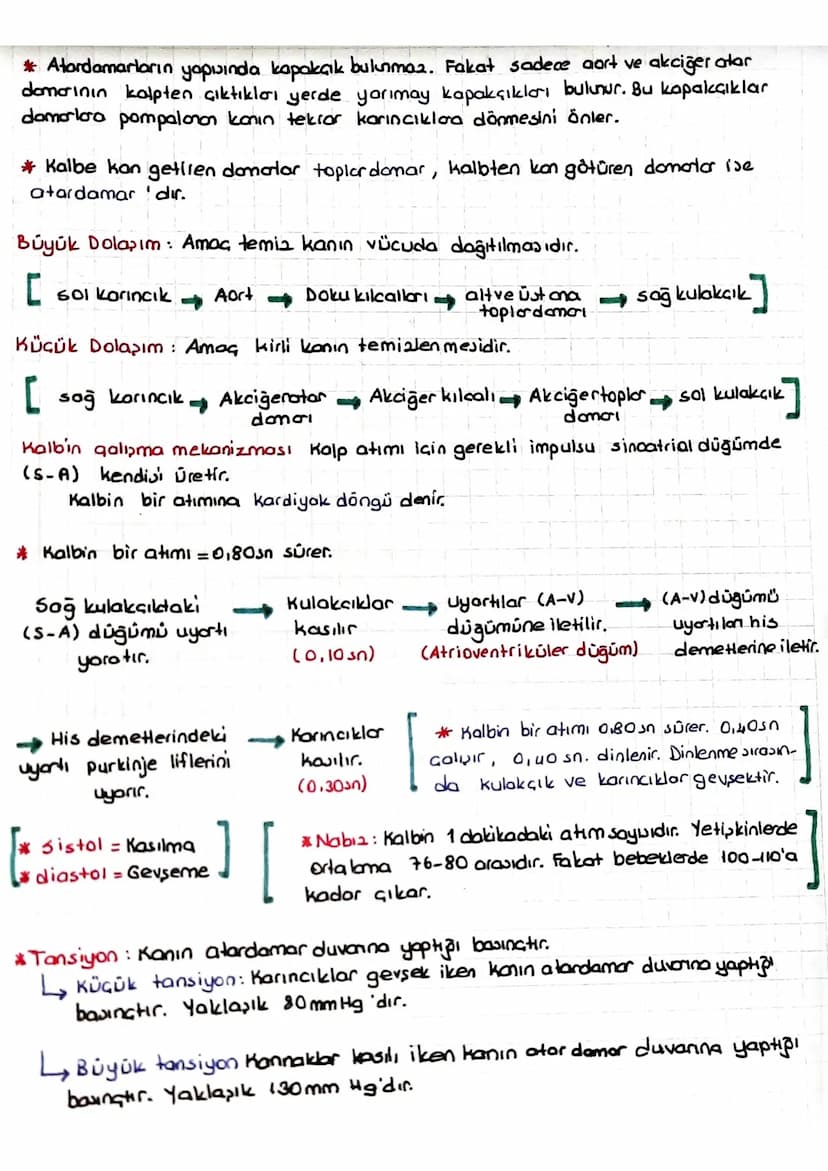 * Atardamarların yapısında kapakçık bulunmaz. Fakat sadece aort ve akciğer atar
damarının kalpten çıktıkları yerde yarımay kapakçıkları bulunur. Bu kapakçıklar
damarlara pompalanan kanın tekrar karıncıklara dönmesini önler.
* Kalbe kan getiren damarlar toplardamar, kalbten kan götüren damarlar ise
atardamar 'dır.
Büyük Dolaşım : Amaç temiz kanın vücuda dağıtılmasıdır.
[ sol karıncık → Aort → Doku kılcalları → alt ve üst ana toplardamarı → sağ kulakçık ]
Küçük Dolaşım : Amaç kirli kanın temizlenmesidir.
[ sağ karıncık → Akciğer atar damarı → Akciğer kılcalı → Akciğer toplar damarı → sol kulakçık ]
Kalbin çalışma mekanizması Kalp atımı için gerekli impulsu sinoatrial düğümde
(S-A) kendisi üretir.
Kalbin bir atımına kardiyak döngü denir.
* Kalbin bir atımı = 0,80sn sürer.
Sağ kulakçıktaki (S-A) düğümü uyartı yaratır. → Kulakcıklar kasılır (0,10sn) → Uyartılar (A-V) düğümüne iletilir. (Atrioventriküler düğüm) → (A-V) düğümü uyartıları his demetlerine iletir.
→ His demetlerindeki uyartı purkinje liflerini uyarır. → Karıncıklar kasılır. (0,30sn)
[ * Kalbin bir atımı 0,80sn sürer. 0,40sn
çalışır, 0,40 sn. dinlenir. Dinlenme sırasın-
da kulakçık ve karıncıklar gevşektir. ]
[ * sistol = Kasılma
* diastol = Gevşeme ]
[ * Nabız : Kalbin 1 dakikadaki atım sayısıdır. Yetişkinlerde
ortalama 76-80 arasıdır. Fakat bebeklerde 100-110'a
kadar çıkar. ]
* Tansiyon : Kanın atardamar duvarına yaptığı basınçtır.
↳ Küçük tansiyon : Karıncıklar gevşek iken kanın atardamar duvarına yaptığı
basınçtır. Yaklaşık 80 mm Hg 'dır.
↳ Büyük tansiyon kasılı iken kanın atar damar duvarına yaptığı
basınçtır. Yaklaşık 130 mm Hg'dır.